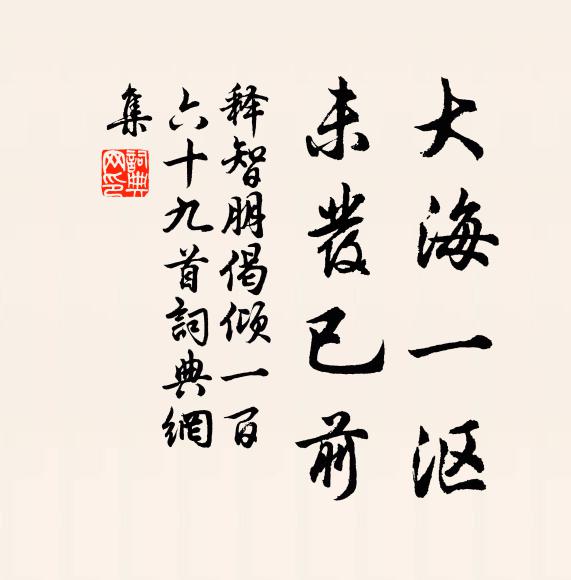 大海一沤
未發已前
释智朋偈倾一百
六十九首詞典網
集
詞典网印